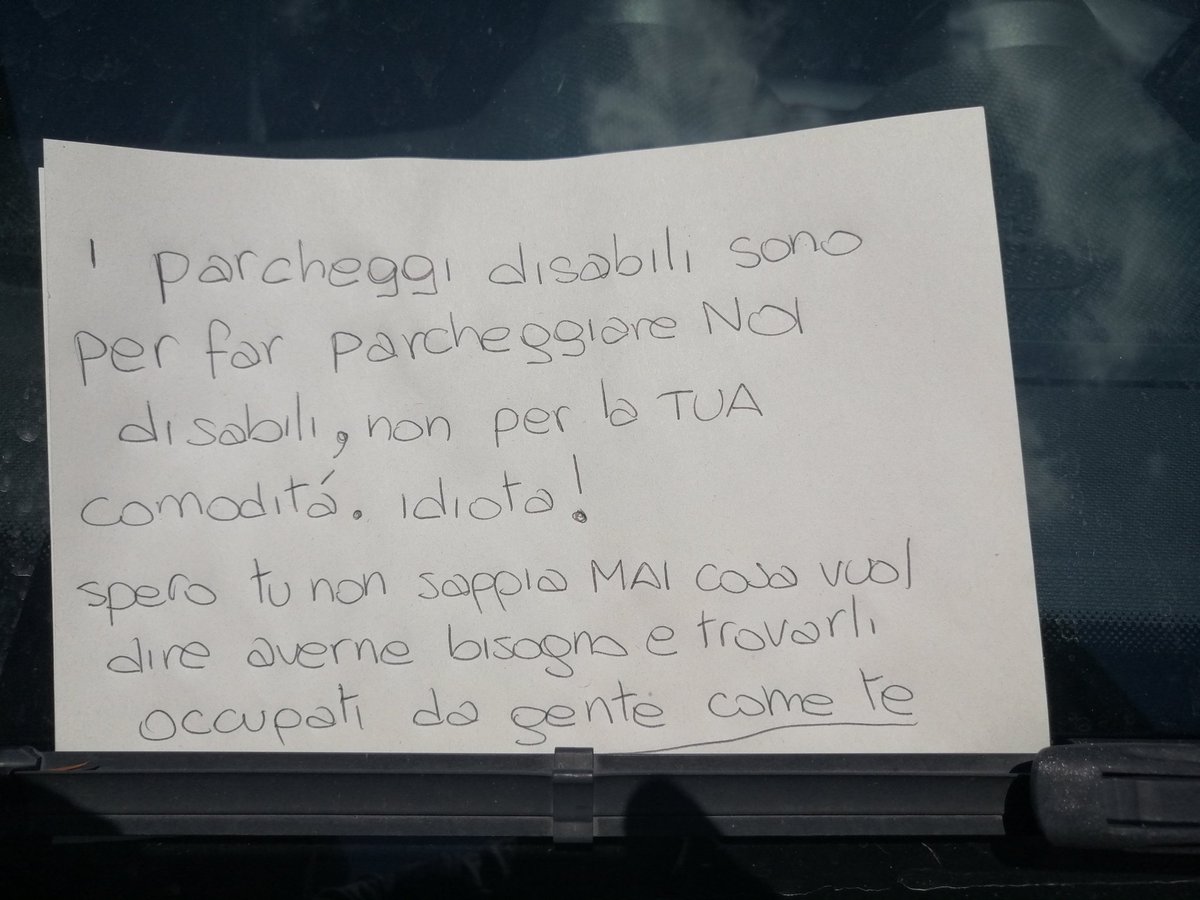 I parcheggi disabili sono
per far parcheggiare NOI
disabili, non per la TUA
comoditá. idiota!
spero tu non sappia MAI cosa vuol
dire averne bisogno e trovarli
occupati da gente come te